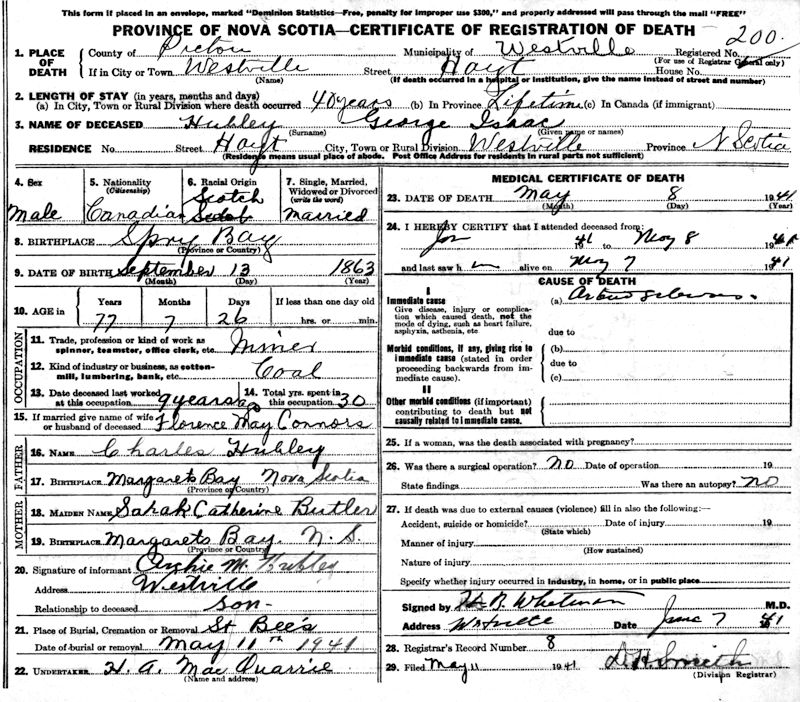 This form if placed in an envelope, marked "Dominion Statistics—Free, penalty for improper use $300," and properly addressed will pass through the mail "FREE"
PROVINCE OF NOVA SCOTIA—CERTIFICATE OF REGISTRATION OF DEATH
200.
1. PLACE OF DEATH
County of Pictou Municipality of Westville Registered No.
(For use of Registrar General only)
If in City or Town Westville Street Hoyt House No.
(Name) (If death occurred in a hospital or institution, give the name instead of street and number)
2. LENGTH OF STAY (in years, months and days)
(a) In City, Town or Rural Division where death occurred 40 years (b) In Province Lifetime (c) In Canada (if immigrant)
3. NAME OF DECEASED Hubley George Isaac
(Surname) (Given name or names)
RESIDENCE No. Street Hoyt City, Town or Rural Division Westville Province N Scotia
(Residence means usual place of abode. Post Office Address for residents in rural parts not sufficient)
4. Sex
Male
5. Nationality
(Citizenship)
Canadian
6. Racial Origin
Scotch
7. Single, Married, Widowed or Divorced
(write the word)
Married
8. BIRTHPLACE Spry Bay
(Province or Country)
9. DATE OF BIRTH September 13 1863
(Month) (Day) (Year)
10. AGE in
Years Months Days If less than one day old
77 7 26 hrs. or min.
OCCUPATION
11. Trade, profession or kind of work as spinner, teamster, office clerk, etc. Miner
12. Kind of industry or business, as cotton-mill, lumbering, bank, etc. Coal
13. Date deceased last worked at this occupation 9 years ago
14. Total yrs. spent in this occupation 30
15. If married give name of wife or husband of deceased Florence May Connors
FATHER
16. NAME Charles Hubley
17. BIRTHPLACE Margarets Bay Nova Scotia
(Province or Country)
MOTHER
18. MAIDEN NAME Sarah Catherine Butler
19. BIRTHPLACE Margarets Bay. N. S.
(Province or Country)
20. Signature of informant Archie M. Hubley
Address Westville
Relationship to deceased son-
21. Place of Burial, Cremation or Removal St Bee's
Date of burial or removal May 11th 1941
22. UNDERTAKER H. A. Mac Quarrie
(Name and address)
MEDICAL CERTIFICATE OF DEATH
23. DATE OF DEATH May 8 1941
(Month) (Day) (Year)
24. I HEREBY CERTIFY that I attended deceased from:
Jan 41 to May 8 19
and last saw h m alive on May 7 1941
CAUSE OF DEATH
I
Immediate cause
Give disease, injury or complication which caused death, not the mode of dying, such as heart failure, asphyxia, asthenia, etc
(a)
due to
Morbid conditions, if any, giving rise to immediate cause (stated in order proceeding backwards from immediate cause).
(b)
due to
(c)
II
Other morbid conditions (if important) contributing to death but not causally related to immediate cause.
25. If a woman, was the death associated with pregnancy?
26. Was there a surgical operation? NO Date of operation 19
State findings Was there an autopsy? NO
27. If death was due to external causes (violence) fill in also the following:—
Accident, suicide or homicide? Date of injury 19
(State which)
Manner of injury
(How sustained)
Nature of injury
Specify whether injury occurred in industry, in home, or in public place
Signed by H B Whitman M.D.
Address Westville Date June 7 41
28. Registrar's Record Number 8
29. Filed May 11 1941 D H Smith
(Division Registrar)